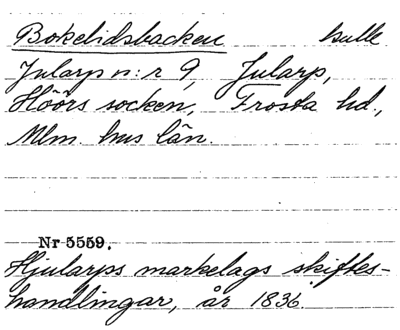 Bokelidsbacken kulle
Jularp n:r 9, Jularp,
Höörs socken, Frosta hd.,
Mlm. hus län.
Nr 5559.
Hjularps markelags skiftes-
handlingar, år 1836.